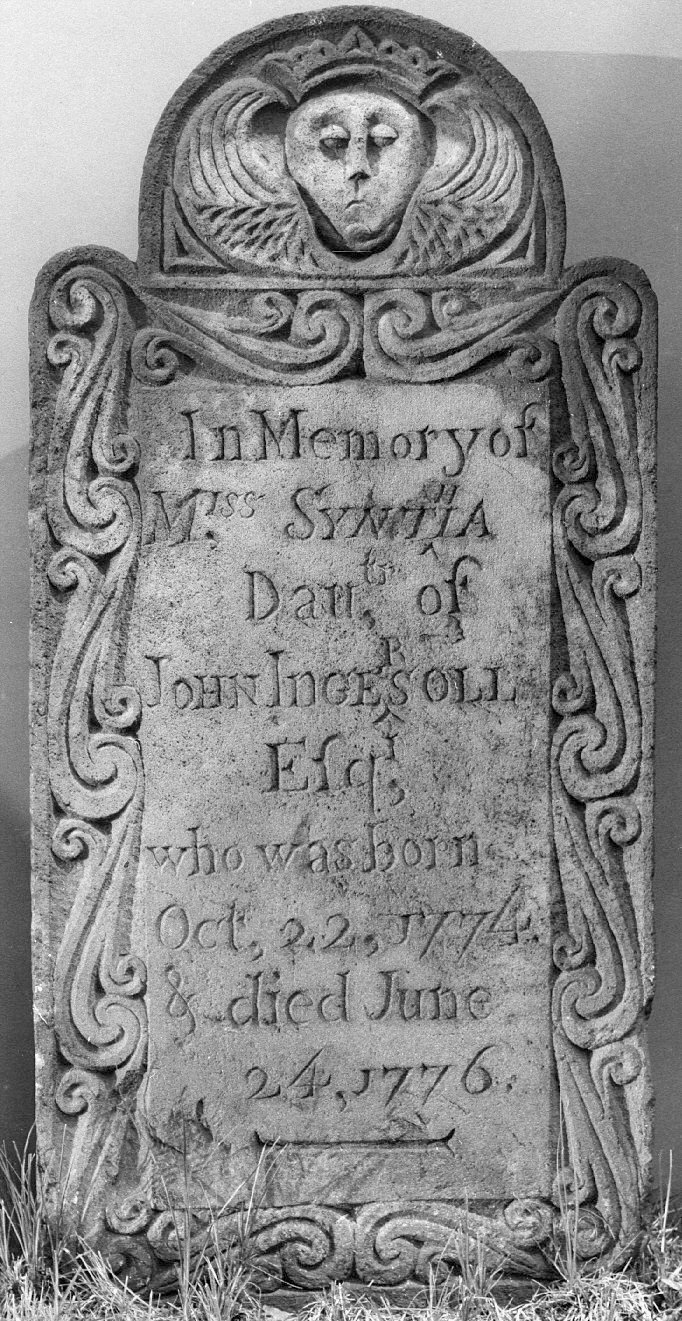 In Memory of
Miss SYNTHIA
Dau,tr of
JOHN INGERSOLL
Eſq;
who was born
Oct, 22, 1774
& died June
24, 1776.